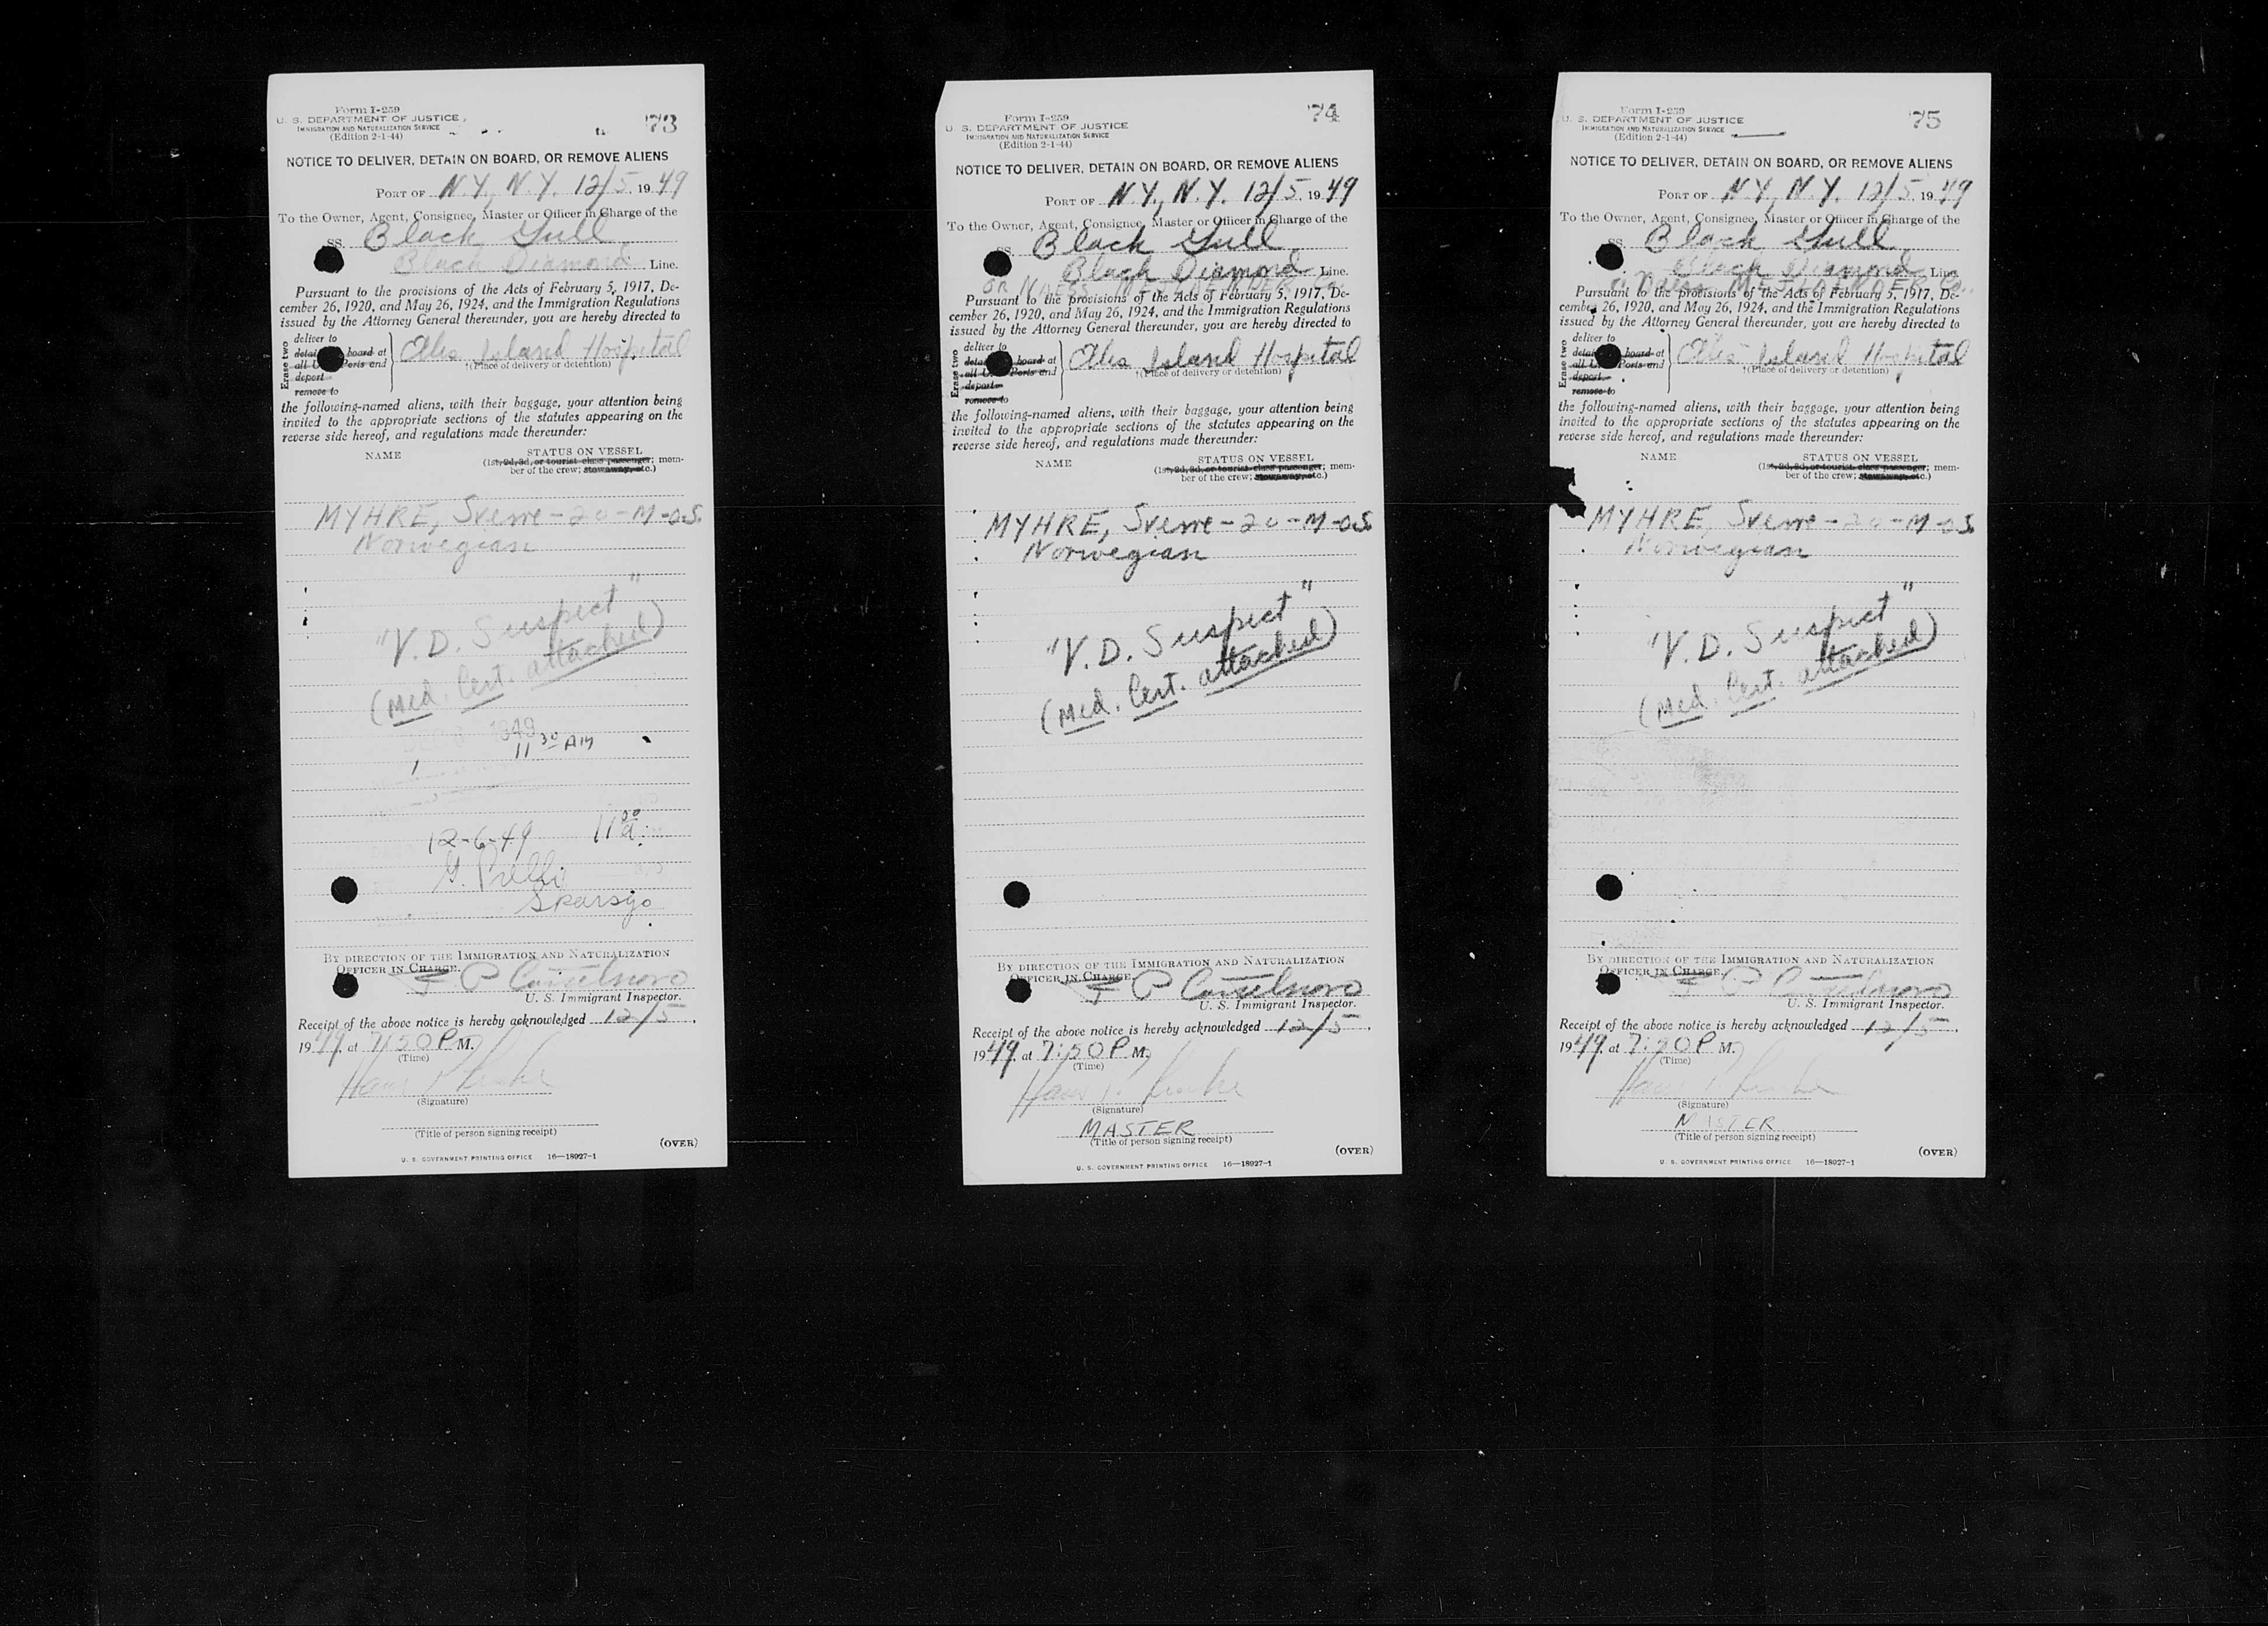 Form I-259
U. S. DEPARTMENT OF JUSTICE
IMMIGRATION AND NATURALIZATION SERVICE
(Edition 2-1-44)
73
NOTICE TO DELIVER, DETAIN ON BOARD, OR REMOVE ALIENS
PORT OF N.Y., N.Y. 12/5, 1949
To the Owner, Agent, Consignee, Master or Officer in Charge of the
SS. Black Gull,
Black Diamond Line.
Pursuant to the provisions of the Acts of February 5, 1917, De-
cember 26, 1920, and May 26, 1924, and the Immigration Regulations
issued by the Attorney General thereunder, you are hereby directed to
Erase two
deliver to
board at
all Ports and
deport
remove to
Ellis Island Hospital
†(Place of delivery or detention)
the following-named aliens, with their baggage, your attention being
invited to the appropriate sections of the statutes appearing on the
reverse side hereof, and regulations made thereunder:
NAME
STATUS ON VESSEL
(1st, 2d, 3d, or tourist class passenger; mem-
ber of the crew; stowaway, etc.)
MYHRE, Sverre - 20 - M - O.S.
Norwegian
"V.D. Suspect"
(Med. Cert. attached)
1949
11 30 AM
12-6-49 11 00 a.
BY DIRECTION OF THE IMMIGRATION AND NATURALIZATION
OFFICER IN CHARGE.
U. S. Immigrant Inspector.
Receipt of the above notice is hereby acknowledged 12/5,
1949, at 7:50 P M.
(Time)
(Signature)
(Title of person signing receipt)
(OVER)
U. S. GOVERNMENT PRINTING OFFICE 16—18927-1
Form I-259
U. S. DEPARTMENT OF JUSTICE
IMMIGRATION AND NATURALIZATION SERVICE
(Edition 2-1-44)
74
NOTICE TO DELIVER, DETAIN ON BOARD, OR REMOVE ALIENS
PORT OF N.Y., N.Y. 12/5, 1949
To the Owner, Agent, Consignee, Master or Officer in Charge of the
SS. Black Gull,
Black Diamond Line.
OR
Pursuant to the provisions of the Acts of February 5, 1917, De-
cember 26, 1920, and May 26, 1924, and the Immigration Regulations
issued by the Attorney General thereunder, you are hereby directed to
Erase two
deliver to
board at
all U. Ports and
deport
remove to
Ellis Island Hospital
†(Place of delivery or detention)
the following-named aliens, with their baggage, your attention being
invited to the appropriate sections of the statutes appearing on the
reverse side hereof, and regulations made thereunder:
NAME
STATUS ON VESSEL
(1st, 2d, 3d, or tourist class passenger; mem-
ber of the crew; stowaway, etc.)
MYHRE, Sverre - 20 - M - O.S.
Norwegian
"V.D. Suspect"
(Med. Cert. attached)
BY DIRECTION OF THE IMMIGRATION AND NATURALIZATION
OFFICER IN CHARGE.
U. S. Immigrant Inspector.
Receipt of the above notice is hereby acknowledged 12/5,
1949, at 7:50 P M.
(Time)
(Signature)
MASTER
(Title of person signing receipt)
(OVER)
U. S. GOVERNMENT PRINTING OFFICE 16—18927-1
Form I-259
U. S. DEPARTMENT OF JUSTICE
IMMIGRATION AND NATURALIZATION SERVICE
(Edition 2-1-44)
75
NOTICE TO DELIVER, DETAIN ON BOARD, OR REMOVE ALIENS
PORT OF N.Y., N.Y. 12/5, 1949
To the Owner, Agent, Consignee, Master or Officer in Charge of the
SS. Black Gull,
Black Diamond Line
Pursuant to the provisions of the Acts of February 5, 1917, De-
cember 26, 1920, and May 26, 1924, and the Immigration Regulations
issued by the Attorney General thereunder, you are hereby directed to
Erase two
deliver to
board at
all U. Ports and
deport
remove to
Ellis Island Hospital
†(Place of delivery or detention)
the following-named aliens, with their baggage, your attention being
invited to the appropriate sections of the statutes appearing on the
reverse side hereof, and regulations made thereunder:
NAME
STATUS ON VESSEL
(1st, 2d, 3d, or tourist class passenger; mem-
ber of the crew; stowaway, etc.)
MYHRE, Sverre - 20 - M - O.S.
Norwegian
"V.D. Suspect"
(Med. Cert. attached)
BY DIRECTION OF THE IMMIGRATION AND NATURALIZATION
OFFICER IN CHARGE.
U. S. Immigrant Inspector.
Receipt of the above notice is hereby acknowledged 12/5,
1949, at 7:50 P M.
(Time)
(Signature)
MASTER
(Title of person signing receipt)
(OVER)
U. S. GOVERNMENT PRINTING OFFICE 16—18927-1